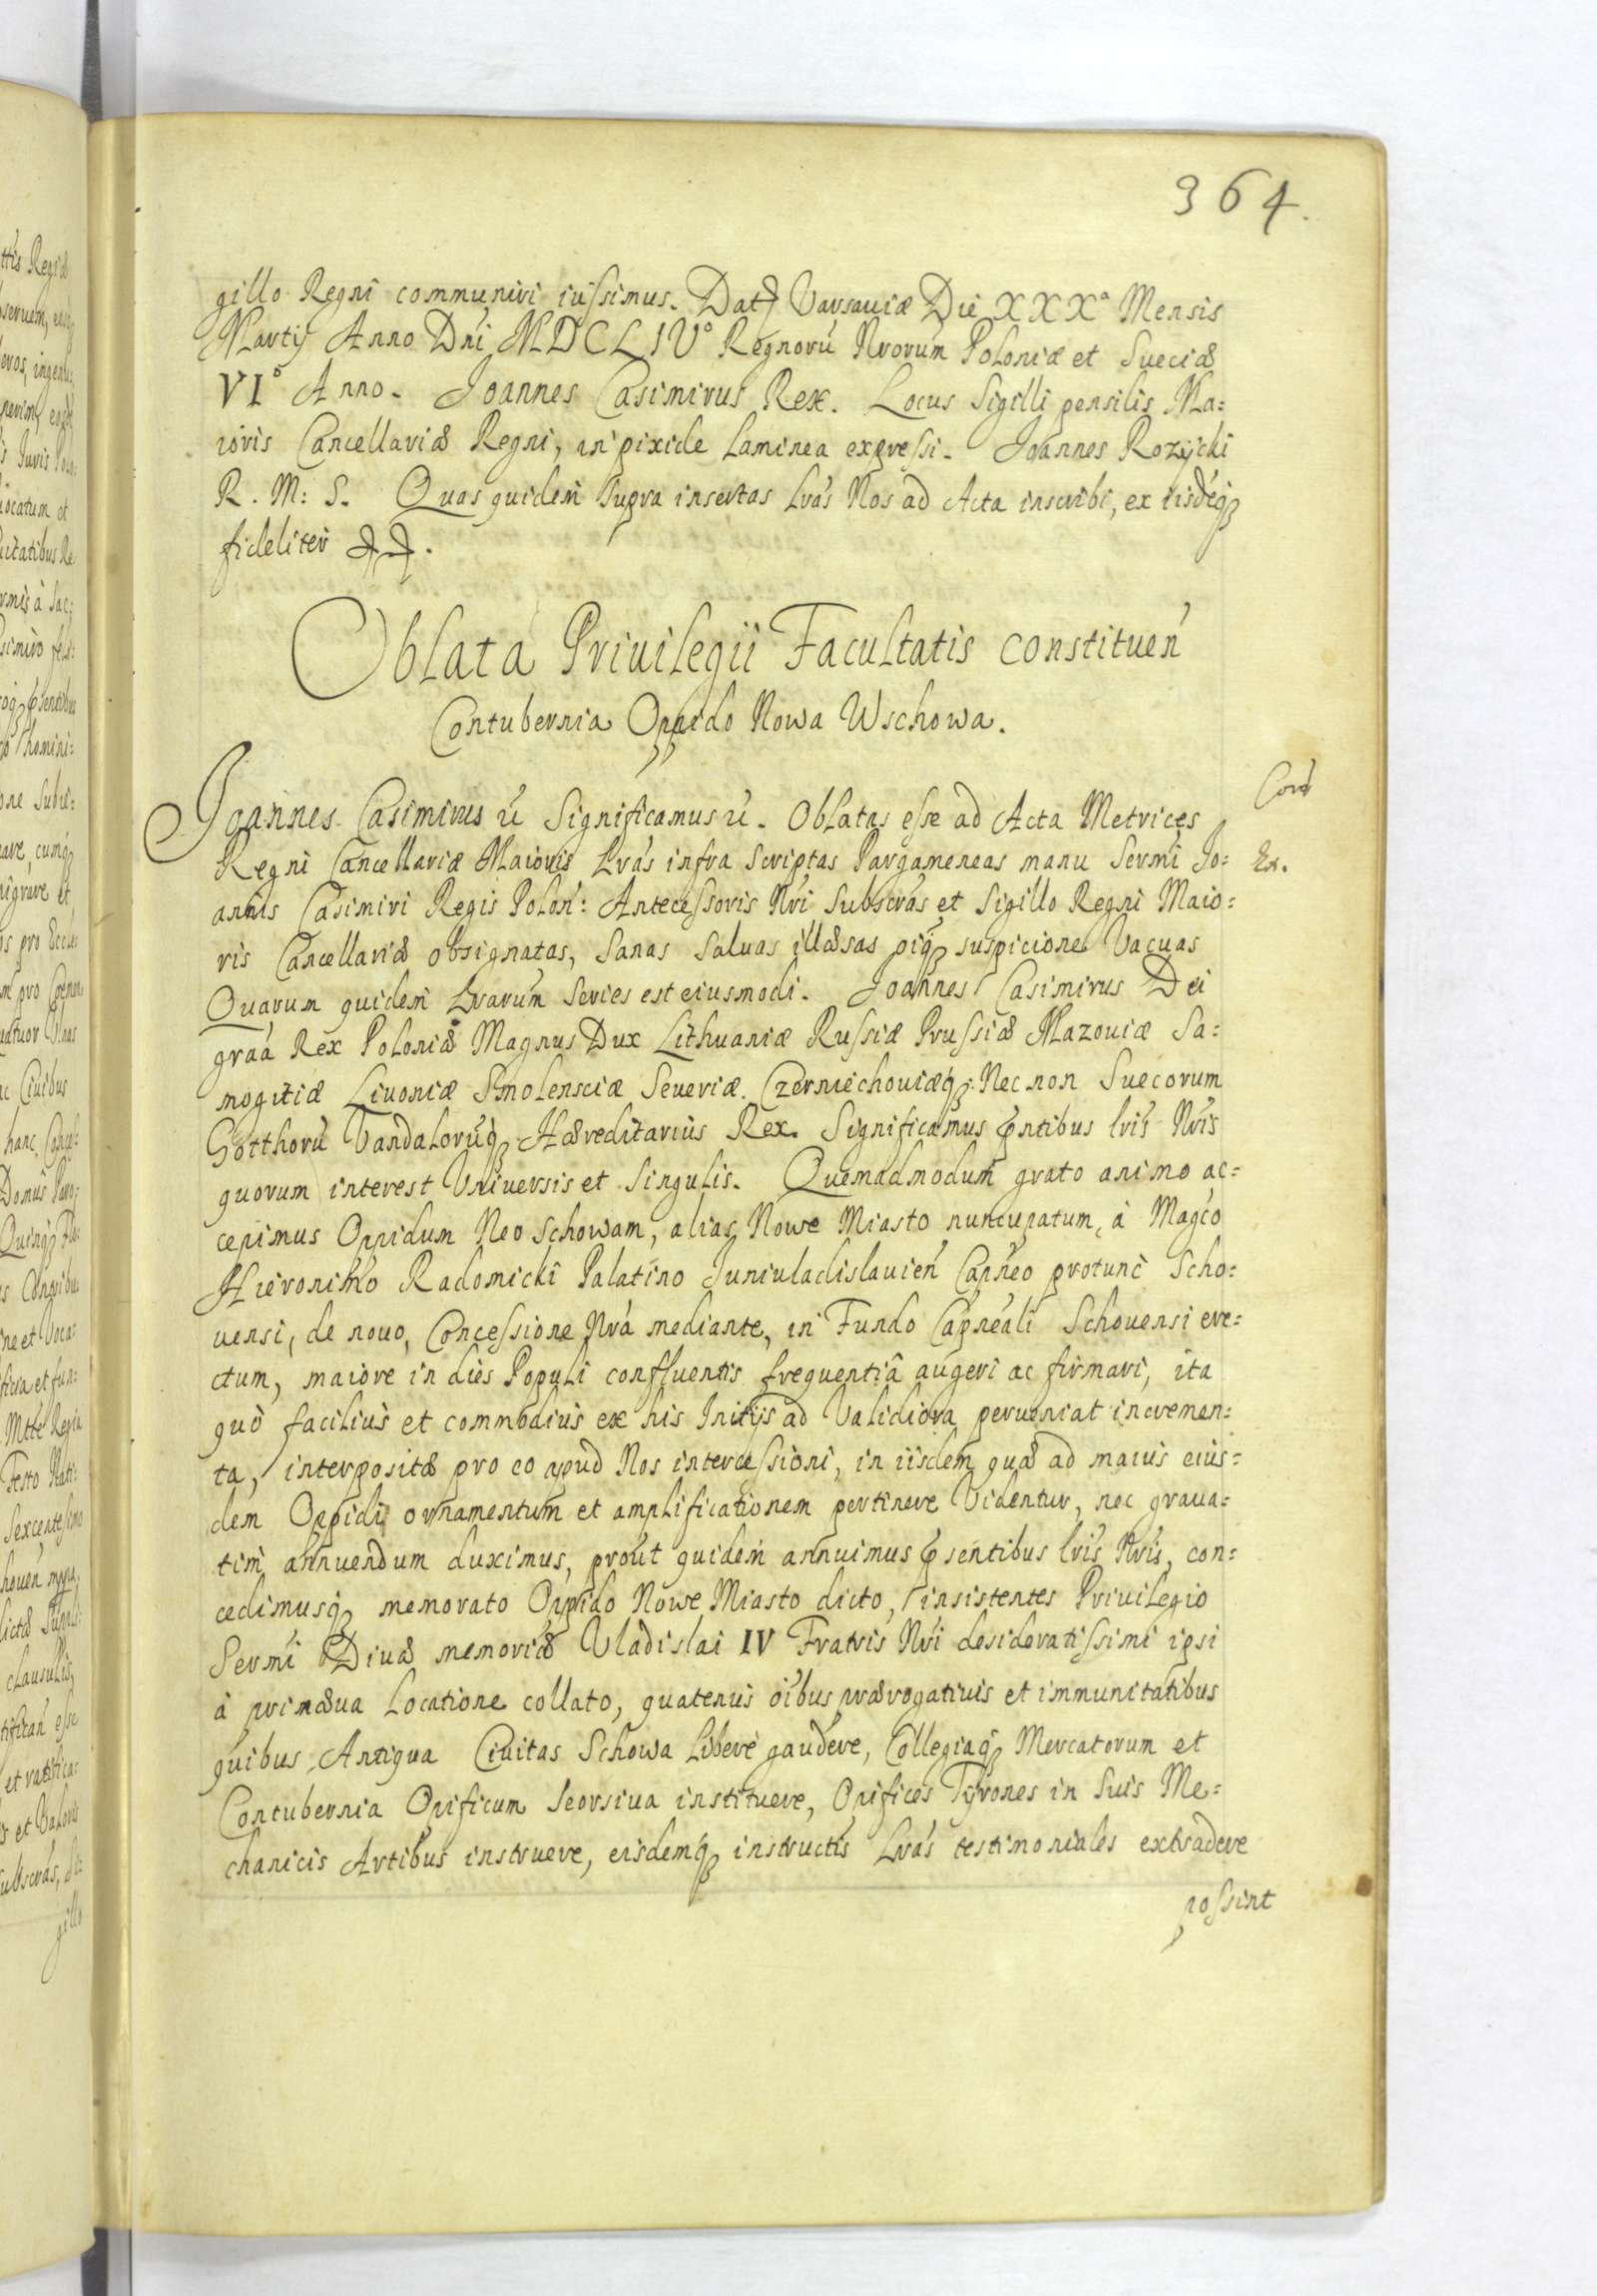 364.
gillo Regni communiri iussimus. Datt Varsaviæ Die XXXa Mensis
Martij Anno Dni MDCLIVo Regnorũ Nrorum Poloniæ et Sueciæ
VIo Anno. Joannes Casimirus Rex. Locus Sigilli pensilis Ma:
ioris Cancellariæ Regni, in pixide laminea expressi. Joannes Rozycki
R. M: S. Quas quidem supra insertas Lrás Nos ad Acta inscribi, ex iisdéq
fideliter
Oblata Priuilegii Facultatis constitueń
Contubernia Oppido Nowa Wschowa.
Joannes Casimirus ũ Significamus ũ. Oblatas esse ad Acta Metrices
Regni Cancellariæ Maioris Lrás infra scriptas Pargameneas manu Sermi Jo:
Ex.
annis Casimiri Regis Poloń: Antecessoris Nri Subscrás et Sigillo Regni Maio:
ris Cancellariæ obsignatas, Sanas Saluas illæsas oiq suspicione Vacuas
Quarum quidem Lrarum Series est eiusmodi. Joannes Casimirus Dei
graá Rex Poloniæ Magnus Dux Lithuaniæ Russiæ Prussiæ Mazouiæ Sa:
mogitiæ Liuoniæ Smolensciæ Seueriæ Czerniechouiæq Nec non Suecorum
Gotthorũ Vandalorũq Hæreditarius Rex. Significamus pntibus lris Nris
quorum interest Vniuersis et Singulis. Quemadmodum grato animo ac:
cepimus Oppidum Neo Schowam, alias Nowe Miasto nuncupatum, à Magco
Hieronimo Radomicki Palatino Juniuladislauień Capneo protunc Scho:
uensi, de nouo, Concessione Nrá mediante, in Fundo Capneali Schouensi ere:
ctum, maiore in dies Populi confluentis frequentiâ augeri ac firmari, ita
quò facilius et commodius ex his Initijs ad Validiora perueniat incremen:
ta, interpositæ pro eo apud Nos intercessioni, in iisdem quæ ad maius eius:
dem Oppidi ornamentum et amplificationem pertinere Videntur, nec graua:
tim annuendum duximus, prout quidem annuimus psentibus lris Nris, con:
cedimusq memorato Oppido Nowe Miasto dicto, insistentes Priuilegio
Sermi Diuæ memoriæ Vladislai IV Fratris Nri desideratissimi ipsi
à primæua Locatione collato, quatenus oibus prærogatiuis et immunitatibus
quibus Antiqua Ciuitas Schowa Liberè gaudere, Collegiaq Mercatorum et
Contubernia Opificum Seorsiua instituere, Opifices Tyrones in Suis Me:
chanicis Artibus instruere, eisdemq instructis Lrás testimoniales extradere
possint